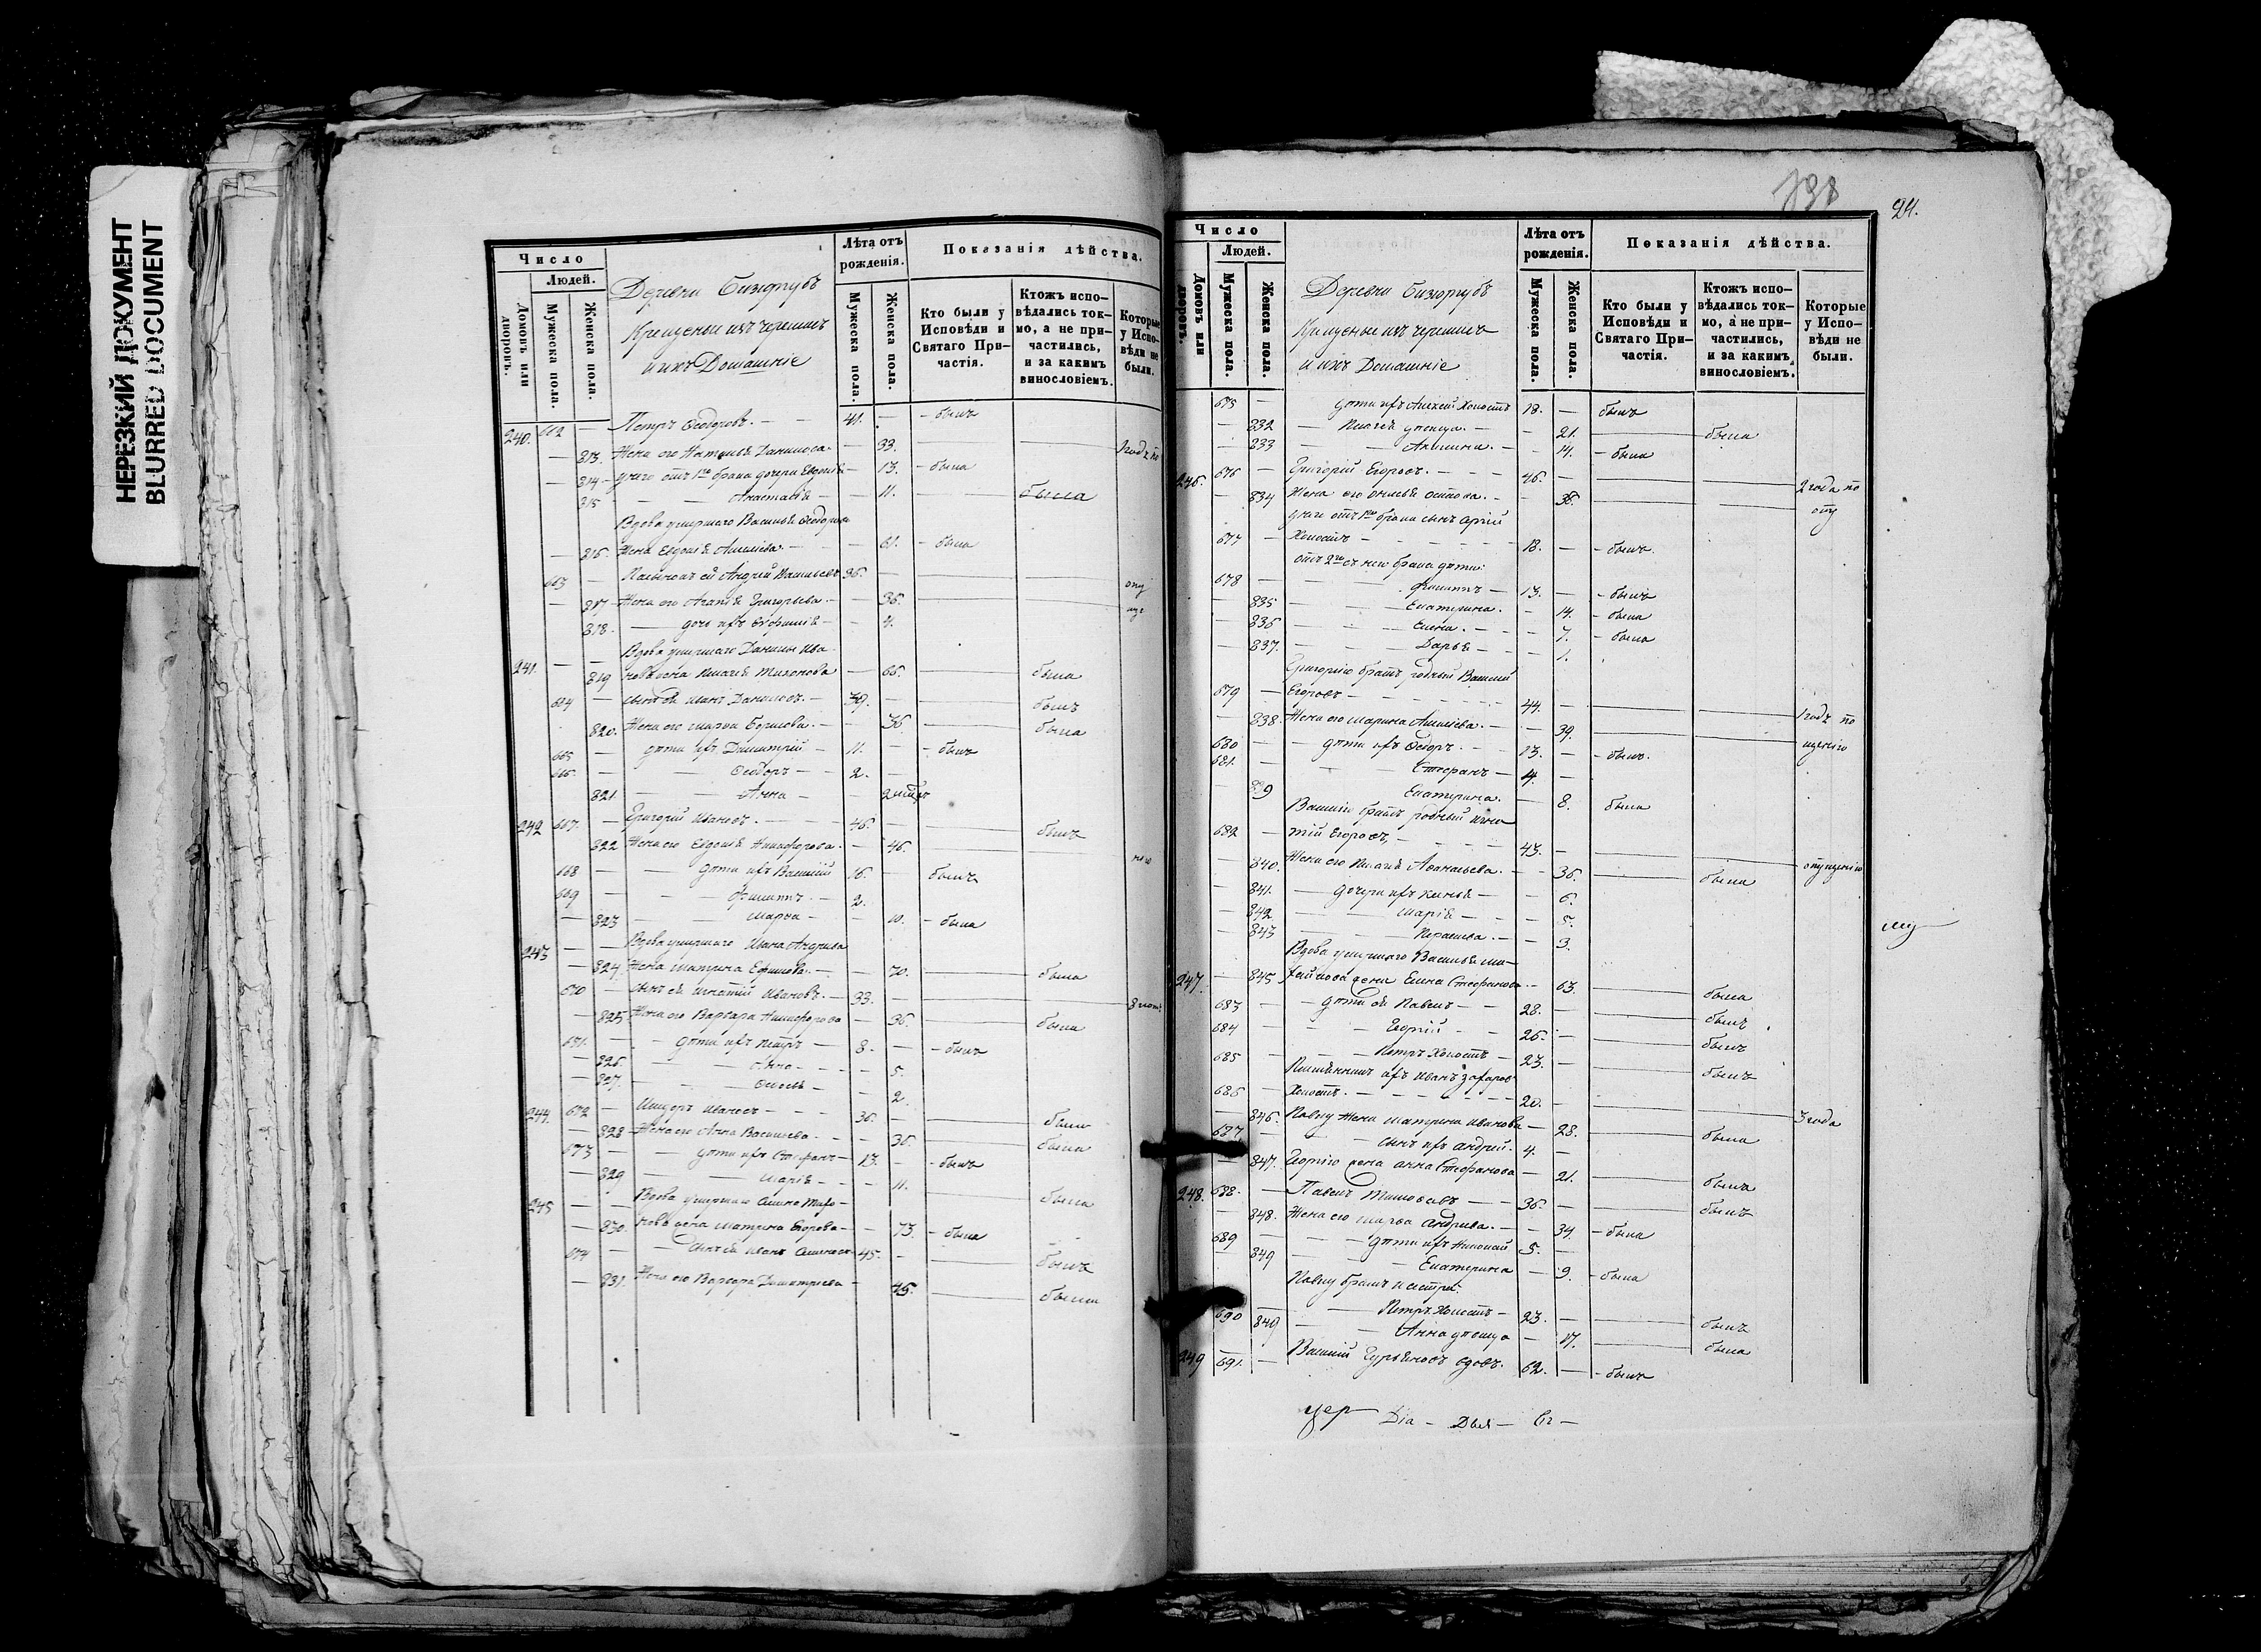 НЕРЕЗКИЙ ДОКУМЕНТ
BLURRED DOCUMENT
Число
Людей.
Домовъ или дворовъ.
Мужеска пола.
Женска пола.
Деревни
Крещеные изъ черемисъ
и ихъ Домашніе
Лѣта отъ рожденія.
Мужеска пола.
Женска пола.
Показанія дѣйства.
Кто были у Исповѣди и Святаго Причастія.
Ктожъ исповѣдались токмо, а не причастились, и за какимъ винословіемъ.
Которые у Исповѣди не были.
240. 662 — Петръ Ѳеодоровъ. — 41. — - былъ
— 813. Жена его Наталья Данилова — 33.
— 814 — у него отъ 1го брака дочери Евдокія — 13. - была
315 Анастасія — 11. — была
Вдова умершаго Василья Ѳеодорова
— 816. Жена Евдокія Алексѣева — 61. - была
663 — Андрей Васильевъ 36. —
— 817 Жена его Агапія Григорьева — 36.
818. — дочь ихъ Евфимія — 4.
Вдова умершаго Данилы Ива-
241. — 819 нова жена Пелагія Тихонова — 66. — была
664 — сынъ ея Иванъ Даниловъ. — 39. — былъ
820. Жена его Марѳа Борисова. — 36 — была
665 — дѣти ихъ Димитрій — 11. — - былъ
666. — Ѳеодоръ — 2. —
821 — Анна — 2
242 667. — Григорій Ивановъ. — 46. — былъ
822 Жена его Евдокія Никифорова. — 46.
668 — дѣти ихъ Василій 16. — былъ
669 — Филиппъ. — 2.
— 823 — Марѳа — 10. - была
243 — Вдова умершаго Ивана Андреева
— 824 Жена Матрина Ефимова. — 70. — была
670 — сынъ ея Игнатій Ивановъ. — 33. —
— 825 Жена его Варвара Никифорова — 36. — была
671. — дѣти ихъ Петръ — 8. — - былъ
— 826. — Анна — 5.
— 827. — 2.
244. 672 — Ивановъ — 36. — былъ
— 828 Жена его Анна Васильева. — 36. — была
673 — дѣти ихъ Стефанъ — 13. — - былъ
— 829 — Марія — 11.
245 — Вдова умершаго — была
— 830. нова жена Матрина Егорова — 73. - была
674 — сынъ ея Иванъ 45. — былъ
— 831. Жена его Варвара Димитриева — 45. — была
738
24.
Число
Людей.
Домовъ или дворовъ.
Мужеска пола.
Женска пола.
Деревни
Крещеные изъ черемисъ
и ихъ Домашніе
Лѣта отъ рожденія.
Мужеска пола.
Женска пола.
Показанія дѣйства.
Кто были у Исповѣди и Святаго Причастія.
Ктожъ исповѣдались токмо, а не причастились, и за какимъ винословіемъ.
Которые у Исповѣди не были.
675 — дѣти ихъ Алексѣй Холостъ 18. — былъ
— 832 — Пелагія дѣвица. — 21. — была
— 833 — Акилина. — 14. - была
246. 676 — Григорій Егоровъ. — 46. — 2 года по
— 834 Жена его — 36. — опу
у него отъ 1го брака сынъ
677 — Холостъ — 18. — - былъ.
отъ 2го съ нею брака дѣти:
678 — Филиппъ — 13. — - былъ
— 835 — Екатерина. — 14. - была
— 836 — Елена. — 7. - была
— 837. — Дарья — 1.
Григорію братъ родный Василій
679 — Егоровъ — 44. — 1 годъ по
— 838. Жена его Марина Алексѣева. — 39. — щенію
680 — дѣти ихъ Ѳеодоръ. — 13. — - былъ.
681. — Стефанъ — 4. —
— 839 Екатерина. — 8. была
Василію братъ родный Игна
682 — тій Егоровъ, — 43. — опущенію
— 840. Жена его Пелагія Аѳанасьева. — 36. — была
— 841. — дочери ихъ — 6.
— 842 — Марія — 5.
— 843 — 3.
Вдова умершаго Василья Ми-
247. — 845 хайлова жена Елена Стефанова. — 63. — была
683 — дѣти ея Павелъ — 28. — былъ
684 — Георгій — 26. — былъ
685 — Петръ Холостъ — 23. — былъ
Племянникъ ихъ Иванъ Захаровъ
686 — Холостъ. — 20. — 3 года
— 846. Павлу Жена Матрина Иванова — 28. — была
687 — сынъ ихъ Андрей. 4. —
— 847. Георгію жена Анна Стефанова — 21. — была
248. 688. — Павелъ — 36. — былъ
— 848. Жена его Марѳа Андреева. — 34. - была
689 — дѣти ихъ Николай 5. —
— 849 — Екатерина — 9. - была
Павлу братъ и сестра:
690 — Петръ Холостъ — 23. — былъ
849 — Анна дѣвица — 17. — была
249 691. — Василій вдовъ. 62. — - былъ
Діа —